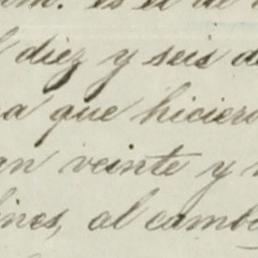 es el de
diez y seis de
a que hiciero
an veinte y
ines, al cambo